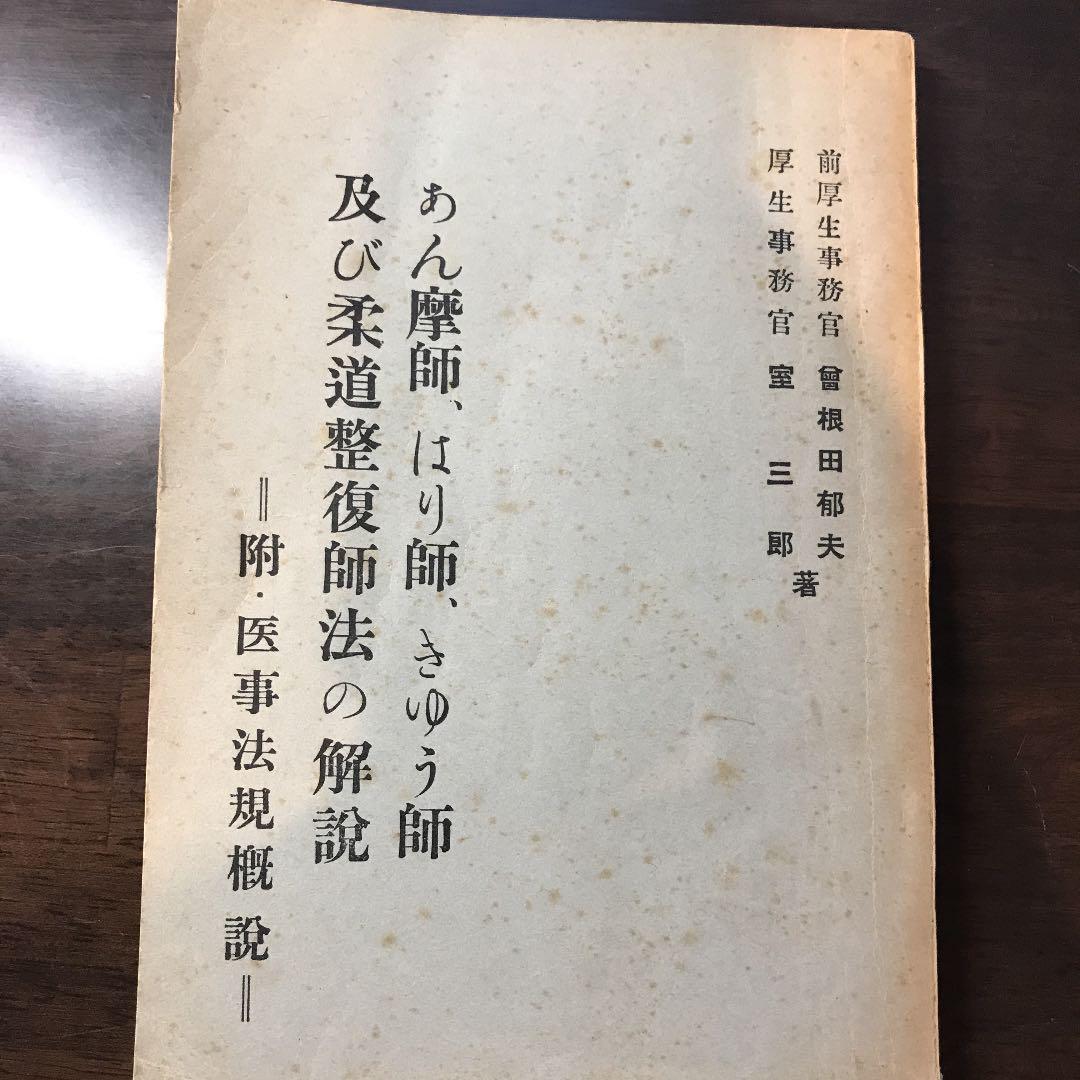 前厚生事務官 曾根田郁夫
厚生事務官 室三郎
著
あん摩師、はり師、きゆう師
及び柔道整復師法の解說
＝附・医事法規概說＝